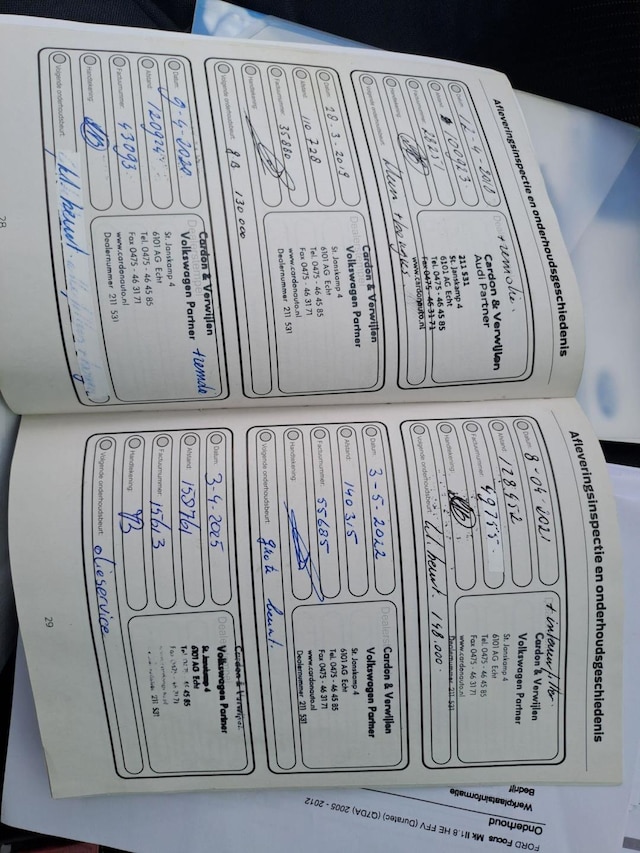 Afleveringsinspectie en onderhoudsgeschiedenis
Datum:
Afstand:
106923
Factuurnummer:
Handtekening:
Volgende onderhoudsbeurt:
+ remolie.
Cardon & Verwijlen
Audi Partner
211 531
St. Janskamp 4
6101 AG Echt
Tel. 0475 - 46 45 85
Fax 0475 - 46 31 71
www.cardonauto.nl
Datum: 28-3-2019
Afstand: 110728
Factuurnummer: 35880
Handtekening:
Volgende onderhoudsbeurt: 130 000
Cardon & Verwijlen
Volkswagen Partner
St. Janskamp 4
6101 AG Echt
Tel. 0475 - 46 45 85
Fax 0475 - 46 31 71
www.cardonauto.nl
Dealernummer 211 531
Datum: 9-4-2020
Afstand: 120924
Factuurnummer: 43093
Handtekening:
Volgende onderhoudsbeurt: kl. beurt
Cardon & Verwijlen
Volkswagen Partner + remolie
St. Janskamp 4
6101 AG Echt
Tel. 0475 - 46 45 85
Fax 0475 - 46 31 71
www.cardonauto.nl
Dealernummer 211 531
28
Afleveringsinspectie en onderhoudsgeschiedenis
Datum: 8-04-2021
Afstand: 128452
Factuurnummer: 49755
Handtekening:
Volgende onderhoudsbeurt: kl. beurt. 148.000.
Cardon & Verwijlen
Volkswagen Partner
St. Janskamp 4
6101 AG Echt
Tel. 0475 - 46 45 85
Fax 0475 - 46 31 71
www.cardonauto.nl
Dealernummer 211 531
Datum: 3-5-2022
Afstand: 140315
Factuurnummer: 55685
Handtekening:
Volgende onderhoudsbeurt: grote beurt.
Cardon & Verwijlen
Volkswagen Partner
St. Janskamp 4
6101 AG Echt
Tel. 0475 - 46 45 85
Fax 0475 - 46 31 71
www.cardonauto.nl
Dealernummer 211 531
Datum: 3-4-2025
Afstand: 158761
Factuurnummer: 15613
Handtekening:
Volgende onderhoudsbeurt: olieservice
Cardon & Verwijlen
Volkswagen Partner
St. Janskamp 4
6101 AG Echt
Tel. 0475 - 46 45 85
Fax 0475 - 46 31 71
211 531
29
FORD Focus Mk II 1.8 HE FFV (Duratec) (Q7DA) 2005 - 2012
Onderhoud
Werkplaatsinformatie
Bedrijf